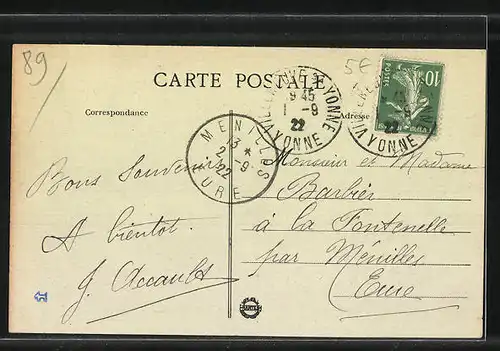 89
5€
CARTE POSTALE
Correspondance
Adresse
POSTES
10
VILLENEUVE YONNE
9 45
1 - 9
22
YONNE
MENILLES
13 *
2 - 9
22
EURE
Bons Souvenirs
A bientôt.
J. Accault
Monsieur et Madame
Barbier
à la Fontenelle
par Ménilles
Eure